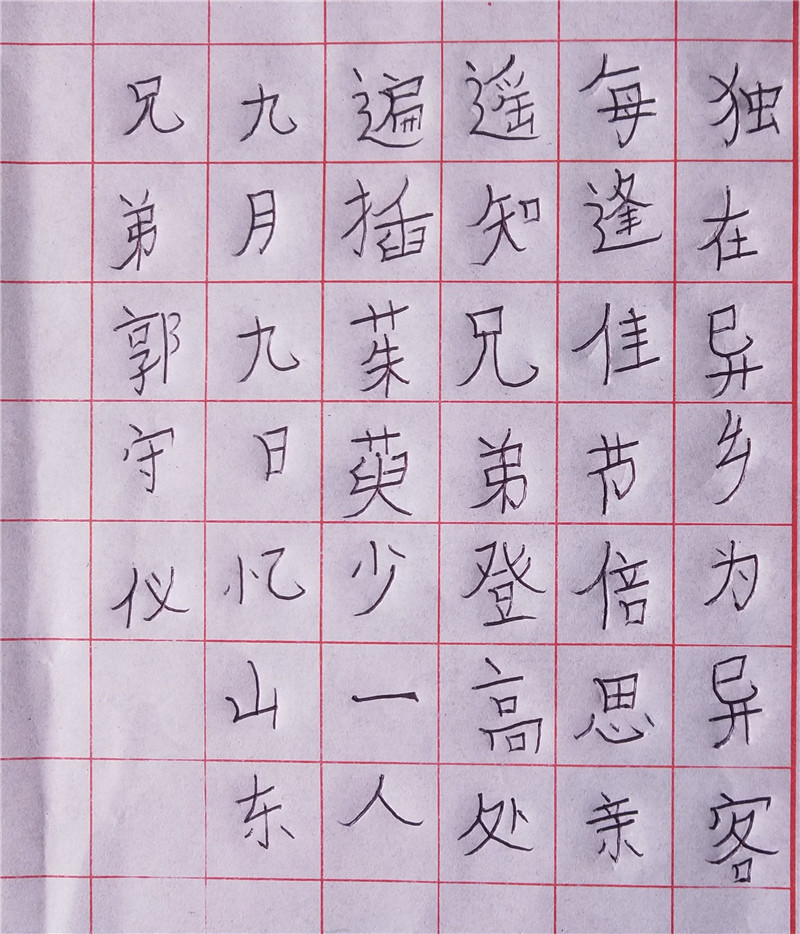 独在异乡为异客
每逢佳节倍思亲
遥知兄弟登高处
遍插茱萸少一人
九月九日忆山东
兄弟郭守仪